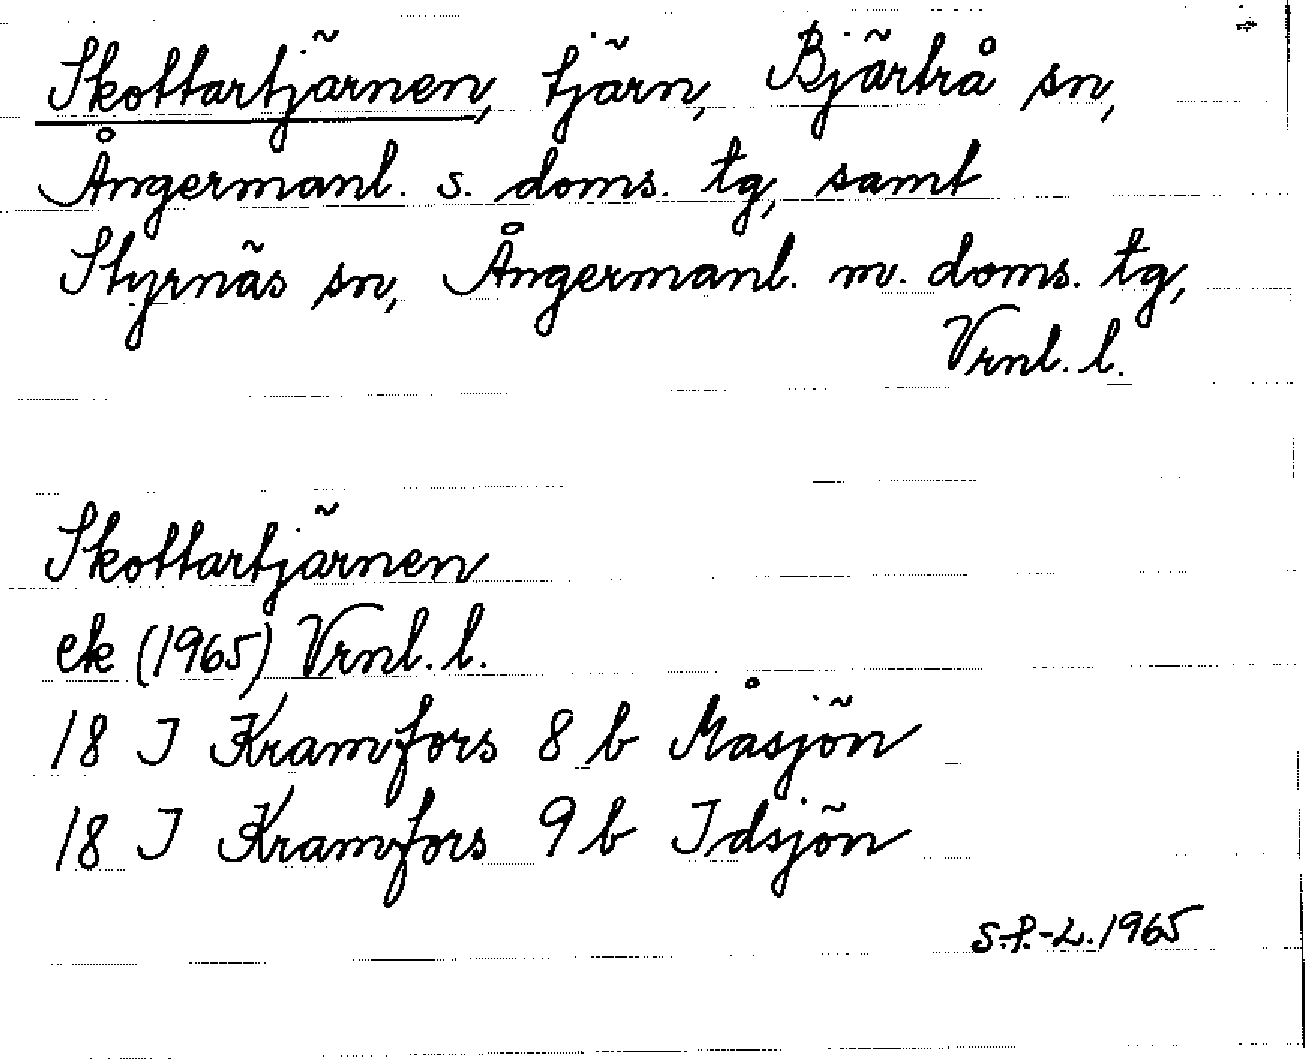 Skottartjärnen, tjärn, Bjärtrå sn,
Ångermanl. s. doms. tg, samt
Styrnäs sn, Ångermanl. m. doms. tg,
Vrnl. l.
Skottartjärnen
ek (1965) Vrnl. l.
18 I Kramfors 8 b Måsjön
18 I Kramfors 9 b Idsjön
S.f.-L. 1965